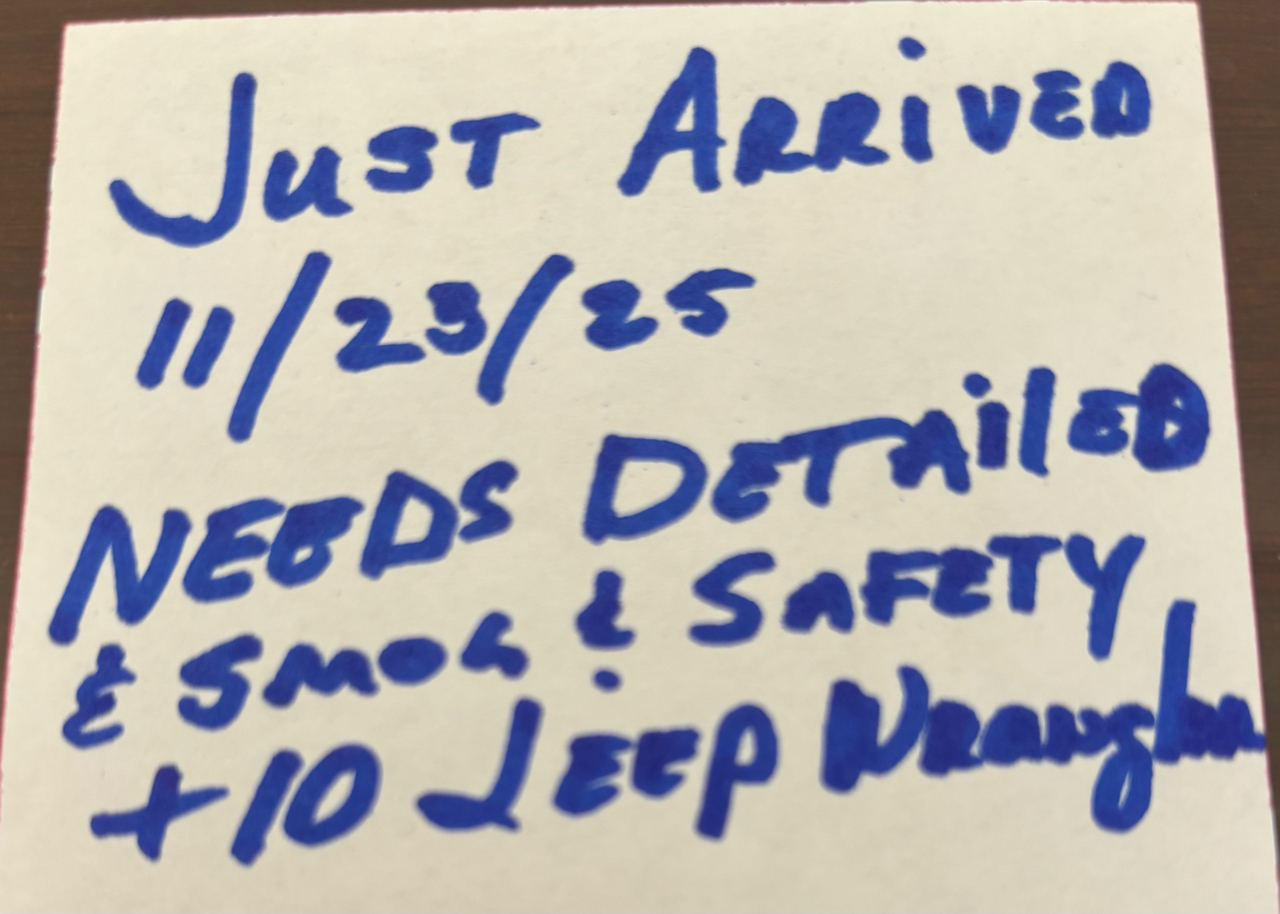 Just Arrived
11/23/25
Needs Detailed
& Smog & Safety
+10 Jeep Wrangler